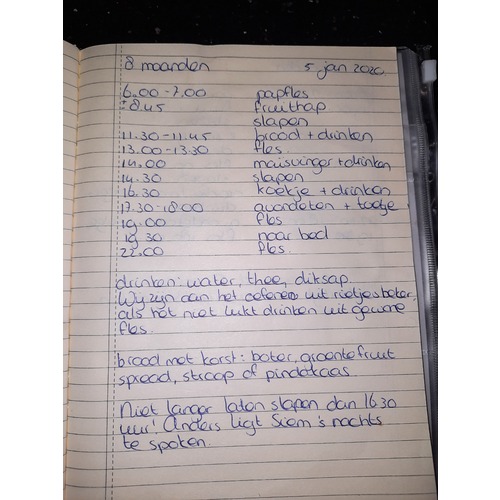 8 maanden 5 jan 2020
6.00-7.00 papfles
± 8.45 fruithap
slapen
11.30-11.45 brood + drinken
13.00-13.30 fles
14.00 maisvinger + drinken
14.30 slapen
16.30 koekje + drinken
17.30-18.00 avondeten + toetje
19.00 fles
19.30 naar bed
22.00 fles
drinken: water, thee, diksap
Wij zijn aan het oefenen uit rietjesbeker,
als het niet lukt drinken uit gewone
fles.
brood met korst: boter, groentefruit
spread, stroop of pindakaas
Niet langer laten slapen dan 16.30
uur! Anders ligt Siem 's nachts
te spoken.